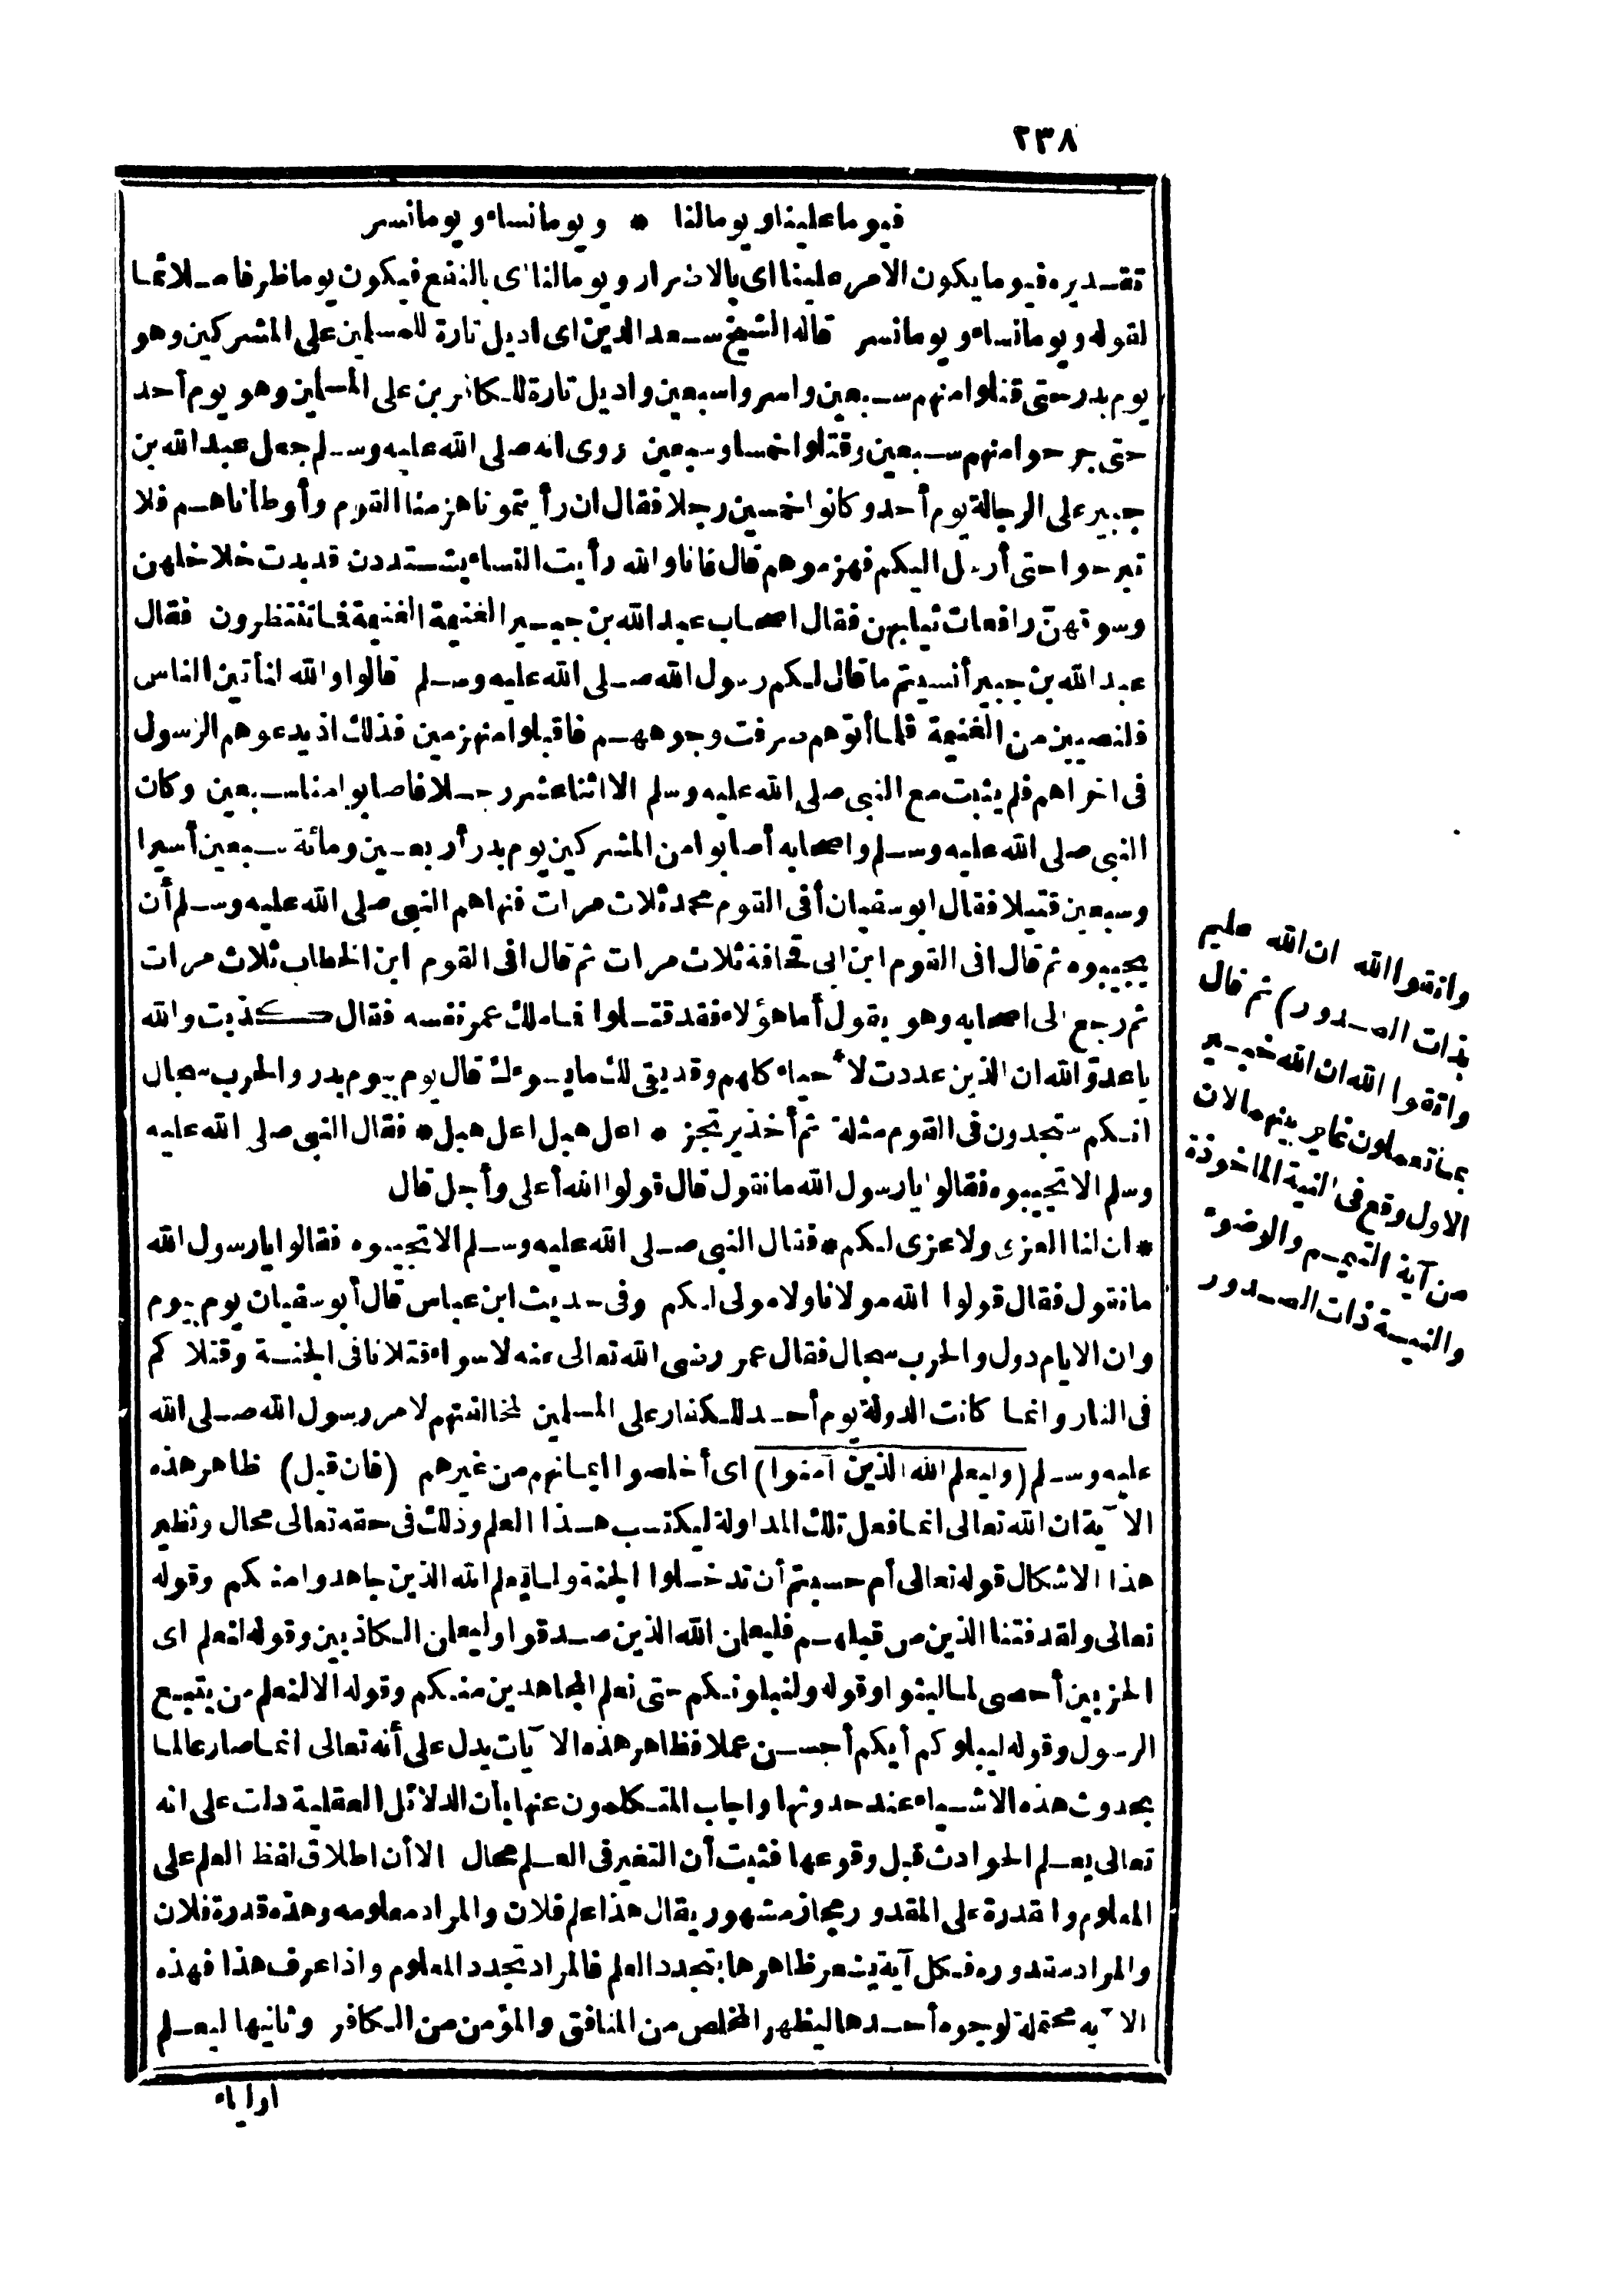 ٢٣٨
فيوما علينا ويوما لنا * ويوما نساء ويوما نسر
تقديره فيوما يكون الامر علينا اى بالاضرار ويوما لنا اى بالنفع فيكون يوما ظرفا ملائما
لقوله ويوما نساء ويوما نسر قاله الشيخ سعد الدين اى اديل تارة للمسلمين على المشركين وهو
يوم بدر حتى قتلوا منهم سبعين واسروا سبعين واديل تارة للكافرين على المسلمين وهو يوم أحد
حتى جرحوا منهم سبعين وقتلوا خمسا وسبعين روى انه صلى الله عليه وسلم جعل عبد الله بن
جبير على الرجالة يوم أحد وكانوا خمسين رجلا فقال ان رأيتمونا هزمنا القوم وأوطأناهم فلا
تبرحوا حتى أرسل اليكم فهزموهم قال فانا والله رأيت النساء يشتددن قد بدت خلاخلهن
وسوقهن رافعات ثيابهن فقال اصحاب عبد الله بن جبير الغنيمة الغنيمة فما تنتظرون فقال
عبد الله بن جبير أنسيتم ما قال لكم رسول الله صلى الله عليه وسلم قالوا والله لنأتين الناس
فلنصيبن من الغنيمة فلما أتوهم صرفت وجوههم فاقبلوا منهزمين فذلك اذ يدعوهم الرسول
فى اخراهم فلم يثبت مع النبى صلى الله عليه وسلم الا اثنا عشر رجلا فاصابوا منا سبعين وكان
النبى صلى الله عليه وسلم واصحابه أصابوا من المشركين يوم بدر أربعين ومائة سبعين أسيرا
وسبعين قتيلا فقال ابو سفيان أفى القوم محمد ثلاث مرات فنهاهم النبى صلى الله عليه وسلم أن
يجيبوه ثم قال افى القوم ابن ابى قحافة ثلاث مرات ثم قال افى القوم ابن الخطاب ثلاث مرات
ثم رجع الى اصحابه وهو يقول أما هؤلاء فقد قتلوا فما ملك عمر نفسه فقال كذبت والله
يا عدو الله ان الذين عددت لأحياء كلهم وقد بقى لك ما يسوءك قال يوم بيوم بدر والحرب سجال
انكم ستجدون فى القوم مثلة ثم أخذ يرتجز * اعل هبل اعل هبل * فقال النبى صلى الله عليه
وسلم الا تجيبوه فقالوا يا رسول الله ما نقول قال قولوا الله أعلى وأجل قال
* ان لنا العزى ولا عزى لكم * فقال النبى صلى الله عليه وسلم الا تجيبوه فقالوا يا رسول الله
ما نقول فقال قولوا الله مولانا ولا مولى لكم وفى حديث ابن عباس قال أبو سفيان يوم بيوم
وان الايام دول والحرب سجال فقال عمر رضى الله تعالى عنه لا سواء قتلانا فى الجنة وقتلاكم
فى النار وانما كانت الدولة يوم أحد للكفار على المسلمين لمخالفتهم لامر رسول الله صلى الله
عليه وسلم (وليعلم الله الذين آمنوا) اى أخلصوا ايمانهم من غيرهم (فان قيل) ظاهر هذه
الآية ان الله تعالى انما فعل تلك المداولة ليكتسب هذا العلم وذلك فى حقه تعالى محال ونظير
هذا الاشكال قوله تعالى أم حسبتم أن تدخلوا الجنة ولما يعلم الله الذين جاهدوا منكم وقوله
تعالى ولقد فتنا الذين من قبلهم فليعلمن الله الذين صدقوا وليعلمن الكاذبين وقوله لنعلم اى
الحزبين أحصى لما لبثوا وقوله ولنبلونكم حتى نعلم المجاهدين منكم وقوله الا لنعلم من يتبع
الرسول وقوله ليبلوكم أيكم أحسن عملا فظاهر هذه الآيات يدل على أنه تعالى انما صار عالما
بحدوث هذه الاشياء عند حدوثها واجاب المتكلمون عنها بأن الدلائل العقلية دلت على انه
تعالى يعلم الحوادث قبل وقوعها فثبت أن التغير فى العلم محال الا أن اطلاق لفظ العلم على
المعلوم والقدرة على المقدور مجاز مشهور يقال هذا علم فلان والمراد معلومه وهذه قدرة فلان
والمراد مقدوره فكل آية يشعر ظاهرها بتجدد العلم فالمراد تجدد المعلوم واذا عرف هذا فهذه
الآية محتملة لوجوه أحدها ليظهر المخلص من المنافق والمؤمن من الكافر وثانيها ليعلم
اولياء
واتقوا الله ان الله عليم
بذات الصدور) ثم قال
واتقوا الله ان الله خبير
بما تعملون غاير بينهما لان
الاول وقع فى النية المأخوذة
من آية التيمم والوضوء
والنية ذات الصدور